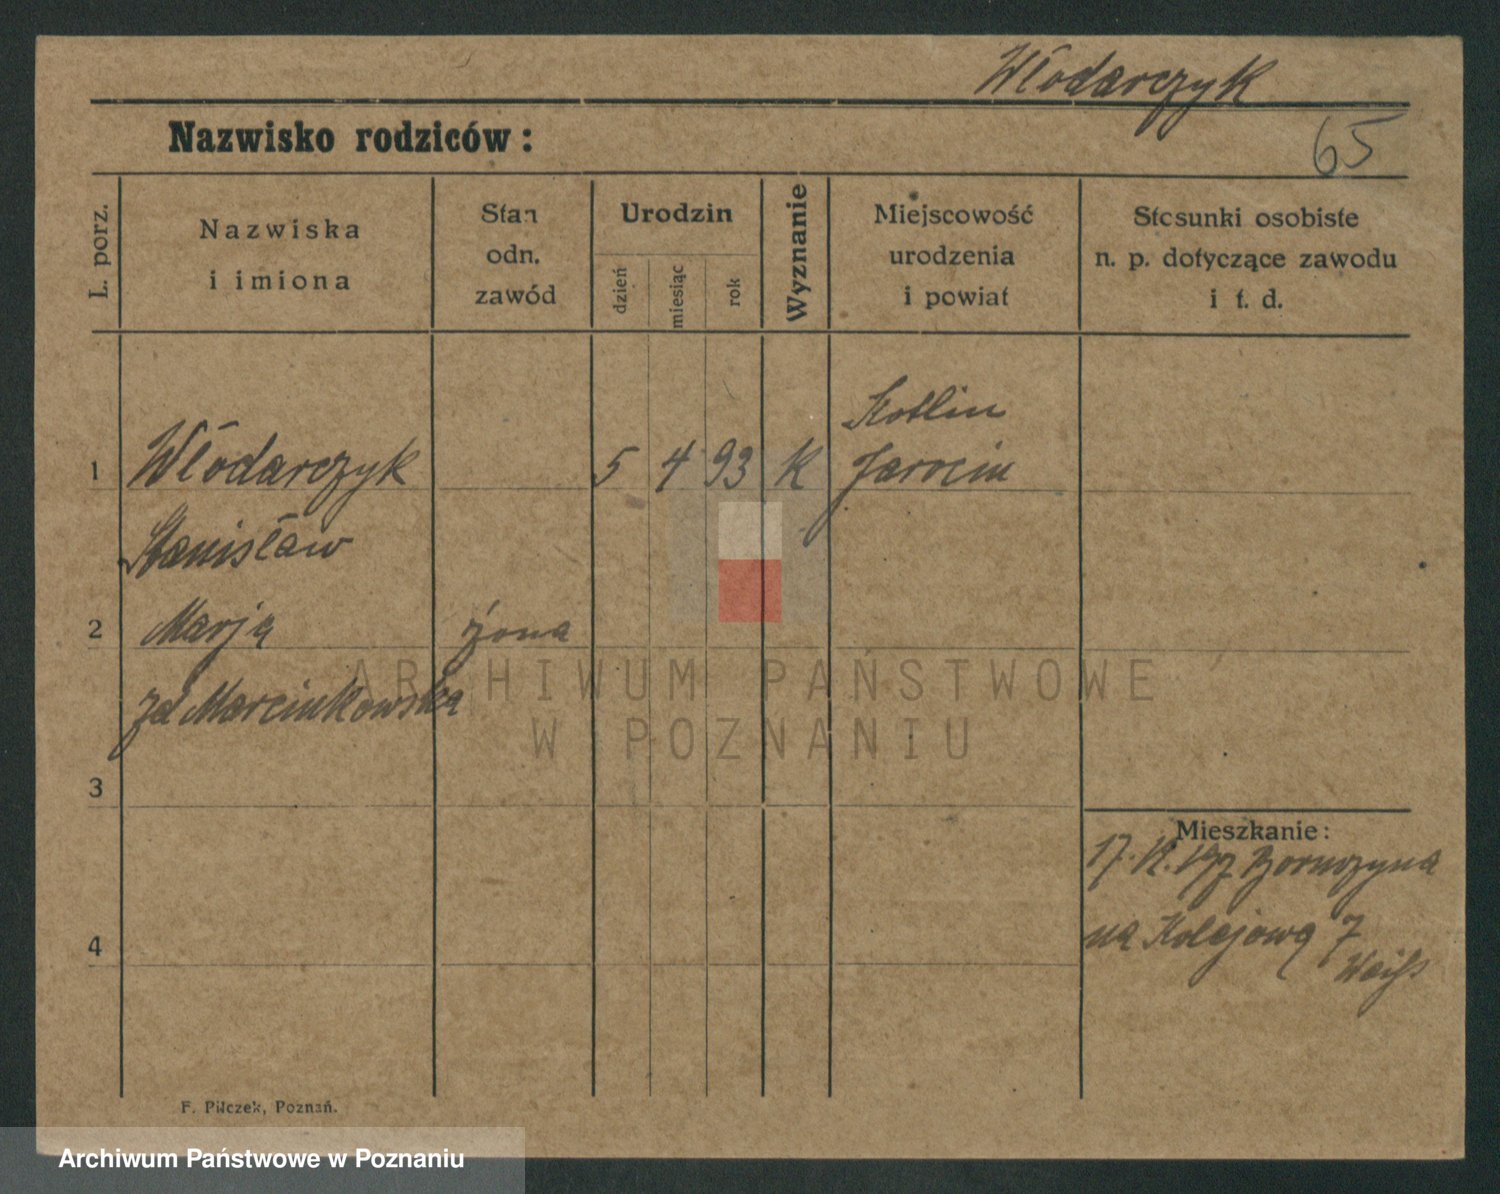 Włodarczyk
65
Nazwisko rodziców:
L. porz.
Nazwiska
i imiona
Stan
odn.
zawód
Urodzin
dzień
miesiąc
rok
Wyznanie
Miejscowość
urodzenia
i powiat
Stosunki osobiste
n. p. dotyczące zawodu
i t. d.
Kotlin
1 Włodarczyk 5 4 93 K Jarocin
Stanisław
2 Marja żona
zd Marcinkowska
3
Mieszkanie:
17.
4 na Kolejową 7
F. Pilczek, Poznań.
ARCHIWUM PAŃSTWOWE
W POZNANIU
Archiwum Państwowe w Poznaniu